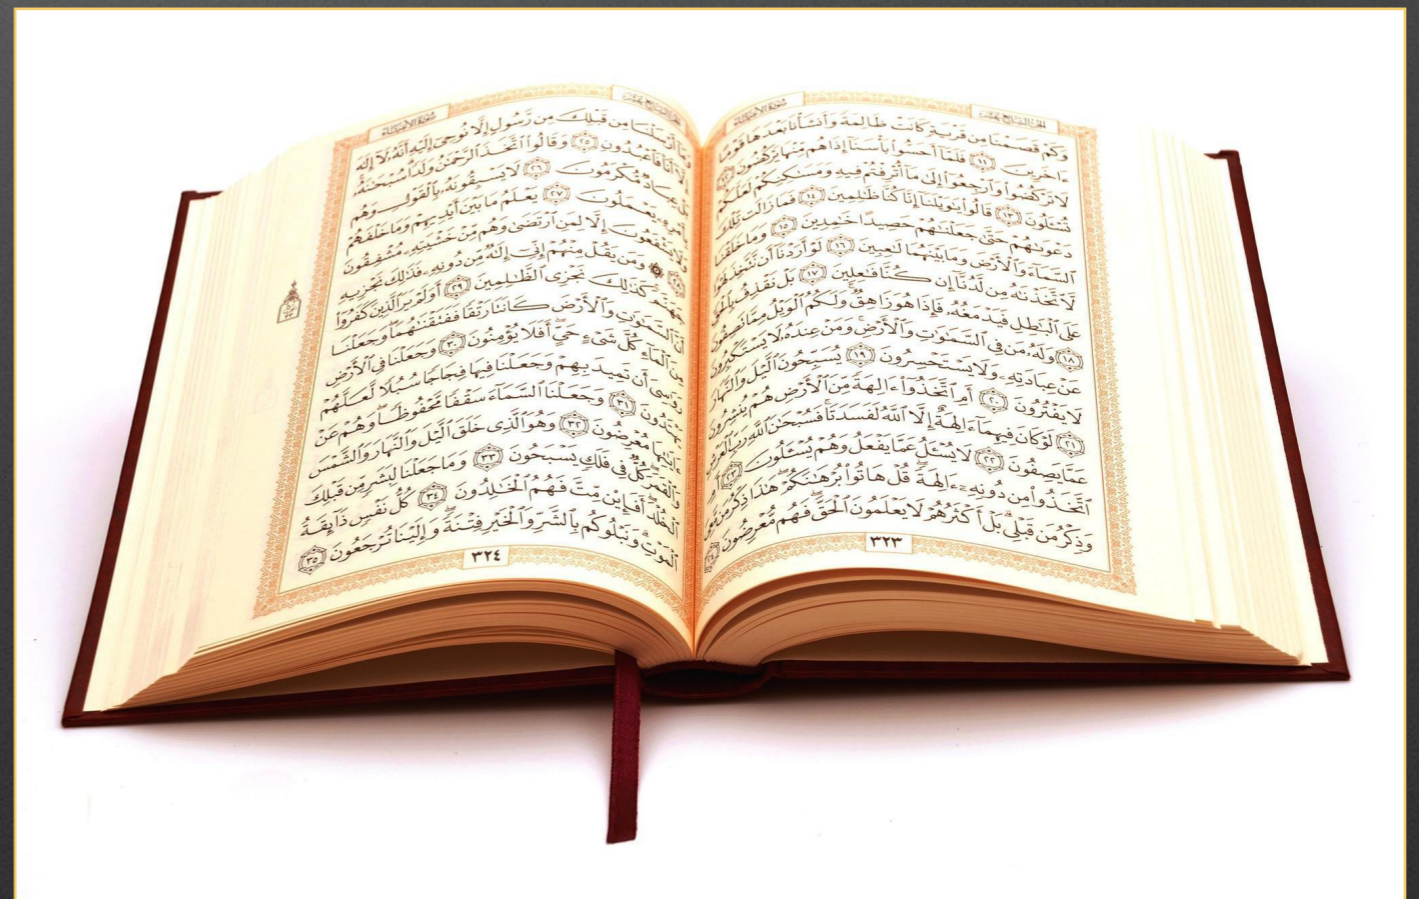 الجزء السابع عشر سورة الأنبياء
وَكَمْ قَصَمْنَا مِن قَرْيَةٍ كَانَتْ ظَالِمَةً وَأَنشَأْنَا بَعْدَهَا قَوْمًا
ءَاخَرِينَ ١١ فَلَمَّآ أَحَسُّوا۟ بَأْسَنَآ إِذَا هُم مِّنْهَا يَرْكُضُونَ ١٢
لَا تَرْكُضُوا۟ وَٱرْجِعُوٓا۟ إِلَىٰ مَآ أُتْرِفْتُمْ فِيهِ وَمَسَـٰكِنِكُمْ لَعَلَّكُمْ
تُسْـَٔلُونَ ١٣ قَالُوا۟ يَـٰوَيْلَنَآ إِنَّا كُنَّا ظَـٰلِمِينَ ١٤ فَمَا زَالَت تِّلْكَ
دَعْوَىٰهُمْ حَتَّىٰ جَعَلْنَـٰهُمْ حَصِيدًا خَـٰمِدِينَ ١٥ وَمَا خَلَقْنَا
ٱلسَّمَآءَ وَٱلْأَرْضَ وَمَا بَيْنَهُمَا لَـٰعِبِينَ ١٦ لَوْ أَرَدْنَآ أَن نَّتَّخِذَ
لَّٱتَّخَذْنَـٰهُ مِن لَّدُنَّآ إِن كُنَّا فَـٰعِلِينَ ١٧ بَلْ نَقْذِفُ بِٱلْحَقِّ
عَلَى ٱلْبَـٰطِلِ فَيَدْمَغُهُۥ فَإِذَا هُوَ زَاهِقٌ وَلَكُمُ ٱلْوَيْلُ مِمَّا تَصِفُونَ
١٨ وَلَهُۥ مَن فِى ٱلسَّمَـٰوَٰتِ وَٱلْأَرْضِ وَمَنْ عِندَهُۥ لَا يَسْتَكْبِرُونَ
عَنْ عِبَادَتِهِۦ وَلَا يَسْتَحْسِرُونَ ١٩ يُسَبِّحُونَ ٱلَّيْلَ وَٱلنَّهَارَ
لَا يَفْتُرُونَ ٢٠ أَمِ ٱتَّخَذُوٓا۟ ءَالِهَةً مِّنَ ٱلْأَرْضِ هُمْ يُنشِرُونَ
٢١ لَوْ كَانَ فِيهِمَآ ءَالِهَةٌ إِلَّا ٱللَّهُ لَفَسَدَتَا فَسُبْحَـٰنَ ٱللَّهِ رَبِّ ٱلْعَرْشِ
عَمَّا يَصِفُونَ ٢٢ لَا يُسْـَٔلُ عَمَّا يَفْعَلُ وَهُمْ يُسْـَٔلُونَ ٢٣ أَمِ
ٱتَّخَذُوا۟ مِن دُونِهِۦٓ ءَالِهَةً قُلْ هَاتُوا۟ بُرْهَـٰنَكُمْ هَـٰذَا ذِكْرُ مَن مَّعِىَ
وَذِكْرُ مَن قَبْلِى بَلْ أَكْثَرُهُمْ لَا يَعْلَمُونَ ٱلْحَقَّ فَهُم مُّعْرِضُونَ ٢٤
٣٢٣
الجزء السابع عشر سورة الأنبياء
وَمَآ أَرْسَلْنَا مِن قَبْلِكَ مِن رَّسُولٍ إِلَّا نُوحِىٓ إِلَيْهِ أَنَّهُۥ لَآ إِلَـٰهَ
إِلَّآ أَنَا۠ فَٱعْبُدُونِ ٢٥ وَقَالُوا۟ ٱتَّخَذَ ٱلرَّحْمَـٰنُ وَلَدًا سُبْحَـٰنَهُۥ
بَلْ عِبَادٌ مُّكْرَمُونَ ٢٦ لَا يَسْبِقُونَهُۥ بِٱلْقَوْلِ وَهُم
بِأَمْرِهِۦ يَعْمَلُونَ ٢٧ يَعْلَمُ مَا بَيْنَ أَيْدِيهِمْ وَمَا خَلْفَهُمْ
وَلَا يَشْفَعُونَ إِلَّا لِمَنِ ٱرْتَضَىٰ وَهُم مِّنْ خَشْيَتِهِۦ مُشْفِقُونَ
٢٨ ۞ وَمَن يَقُلْ مِنْهُمْ إِنِّىٓ إِلَـٰهٌ مِّن دُونِهِۦ فَذَٰلِكَ نَجْزِيهِ
جَهَنَّمَ كَذَٰلِكَ نَجْزِى ٱلظَّـٰلِمِينَ ٢٩ أَوَلَمْ يَرَ ٱلَّذِينَ كَفَرُوٓا۟
أَنَّ ٱلسَّمَـٰوَٰتِ وَٱلْأَرْضَ كَانَتَا رَتْقًا فَفَتَقْنَـٰهُمَا وَجَعَلْنَا
مِنَ ٱلْمَآءِ كُلَّ شَىْءٍ حَىٍّ أَفَلَا يُؤْمِنُونَ ٣٠ وَجَعَلْنَا فِى ٱلْأَرْضِ
رَوَٰسِىَ أَن تَمِيدَ بِهِمْ وَجَعَلْنَا فِيهَا فِجَاجًا سُبُلًا لَّعَلَّهُمْ
يَهْتَدُونَ ٣١ وَجَعَلْنَا ٱلسَّمَآءَ سَقْفًا مَّحْفُوظًا وَهُمْ عَنْ
ءَايَـٰتِهَا مُعْرِضُونَ ٣٢ وَهُوَ ٱلَّذِى خَلَقَ ٱلَّيْلَ وَٱلنَّهَارَ وَٱلشَّمْسَ
وَٱلْقَمَرَ كُلٌّ فِى فَلَكٍ يَسْبَحُونَ ٣٣ وَمَا جَعَلْنَا لِبَشَرٍ مِّن قَبْلِكَ
ٱلْخُلْدَ أَفَإِي۟ن مِّتَّ فَهُمُ ٱلْخَـٰلِدُونَ ٣٤ كُلُّ نَفْسٍ ذَآئِقَةُ
ٱلْمَوْتِ وَنَبْلُوكُم بِٱلشَّرِّ وَٱلْخَيْرِ فِتْنَةً وَإِلَيْنَا تُرْجَعُونَ ٣٥
٣٢٤